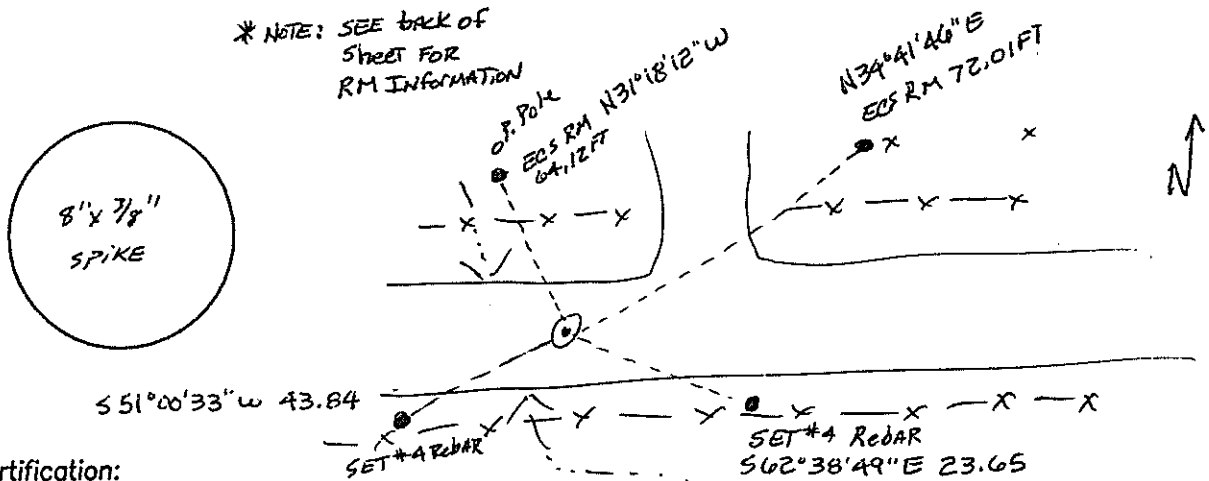 * NOTE: SEE back of
Sheet FOR
RM INFORMATION
P. Pole
ECS RM N31°18'12"W
64.12 FT
N34°41'46"E
ECS RM 72.01 FT
N
8" x 3/8"
SPIKE
S51°00'33"W 43.84
SET #4 RebAR
SET #4 RebAR
S62°38'49"E 23.65
rtification: